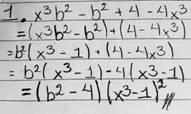 1. x³b² - b² + 4 - 4x³
= (x³b² - b²) + (4 - 4x³)
= b² (x³ - 1) + (4 - 4x³)
= b² (x³ - 1) - 4 (x³ - 1)
= (b² - 4) (x³ - 1)²